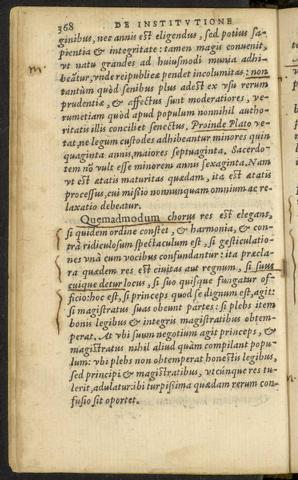 368 DE INSTITVTIONE
ginibus, nec annis est eligendus, sed potius sa-
pientia & integritate: tamen magis conuenit,
vt natu grandes ad huiusmodi munia adhi-
beātur, vnde reipublicæ pendet incolumitas: non
tantùm quòd senibus plus adest ex vsu rerum
prudentiæ, & affectus sunt moderatiores, ve-
rumetiam quòd apud populum nonnihil autho-
ritatis illis conciliet senectus. Proinde Plato ve-
tat, ne legum custodes adhibeantur minores quin
quaginta annis, maiores septuaginta. Sacerdo-
tem nō vult esse minorem annis sexaginta. Nam
vt est ætatis maturitas quædam, ita est ætatis
processus, cui missio nonnunquam omnium ac re-
laxatio debeatur.
Quemadmodum chorus res est elegans,
si quidem ordine constet, & harmonia, & con-
trà ridiculosum spectaculum est, si gesticulatio-
nes vnà cum vocibus confundantur: ita præcla-
ra quædem res est ciuitas aut regnum, si suus
cuique detur locus, si suo quisque fungatur of-
ficio: hoc est, si princeps quod se dignum est, agit:
si magistratus suas obeunt partes: si plebs item
bonis legibus & integris magistratibus obtem-
perat. At vbi suum negotium agit princeps, &
magistratus nihil aliud quàm compilant popu-
lum: vbi plebs non obtemperat honestis legibus,
sed principi & magistratibus, vtcúnque res tu-
lerit, adulatur: ibi turpissima quædam rerum con-
fusio sit oportet.